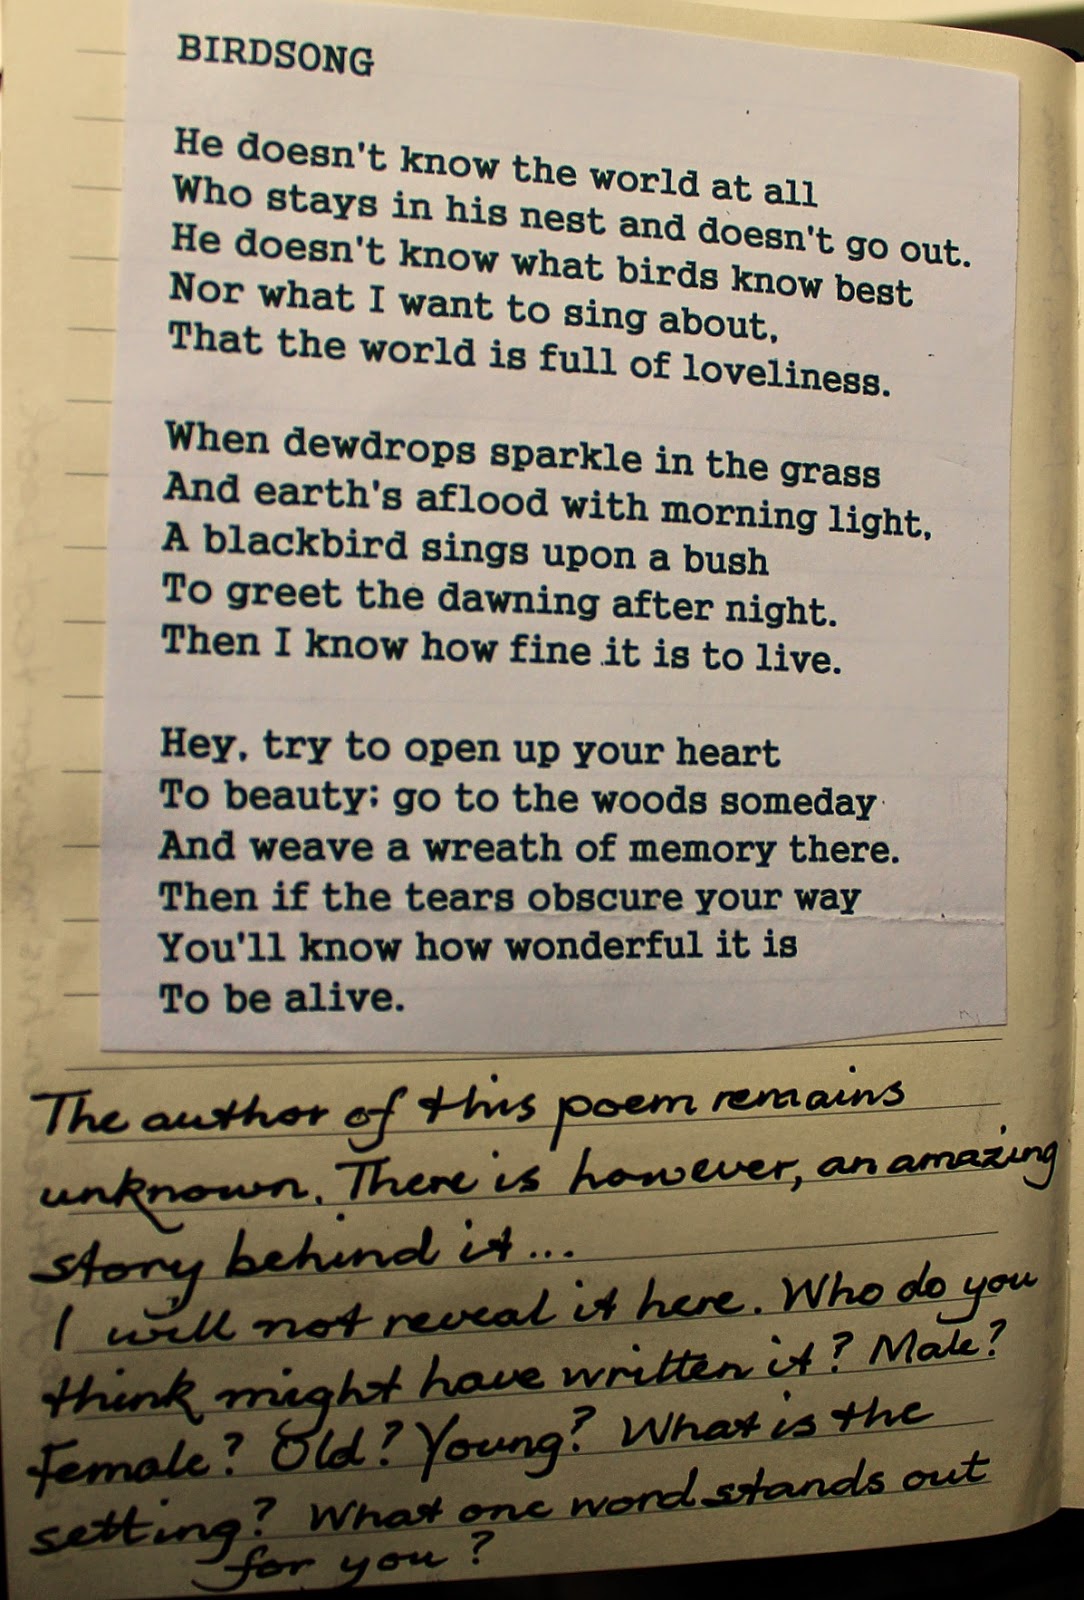 BIRDSONG
He doesn't know the world at all
Who stays in his nest and doesn't go out.
He doesn't know what birds know best
Nor what I want to sing about,
That the world is full of loveliness.
When dewdrops sparkle in the grass
And earth's aflood with morning light,
A blackbird sings upon a bush
To greet the dawning after night.
Then I know how fine it is to live.
Hey, try to open up your heart
To beauty; go to the woods someday
And weave a wreath of memory there.
Then if the tears obscure your way
You'll know how wonderful it is
To be alive.
The author of this poem remains
unknown. There is however, an amazing
story behind it...
I will not reveal it here. Who do you
think might have written it? Male?
Female? Old? Young? What is the
setting? What one word stands out
for you?